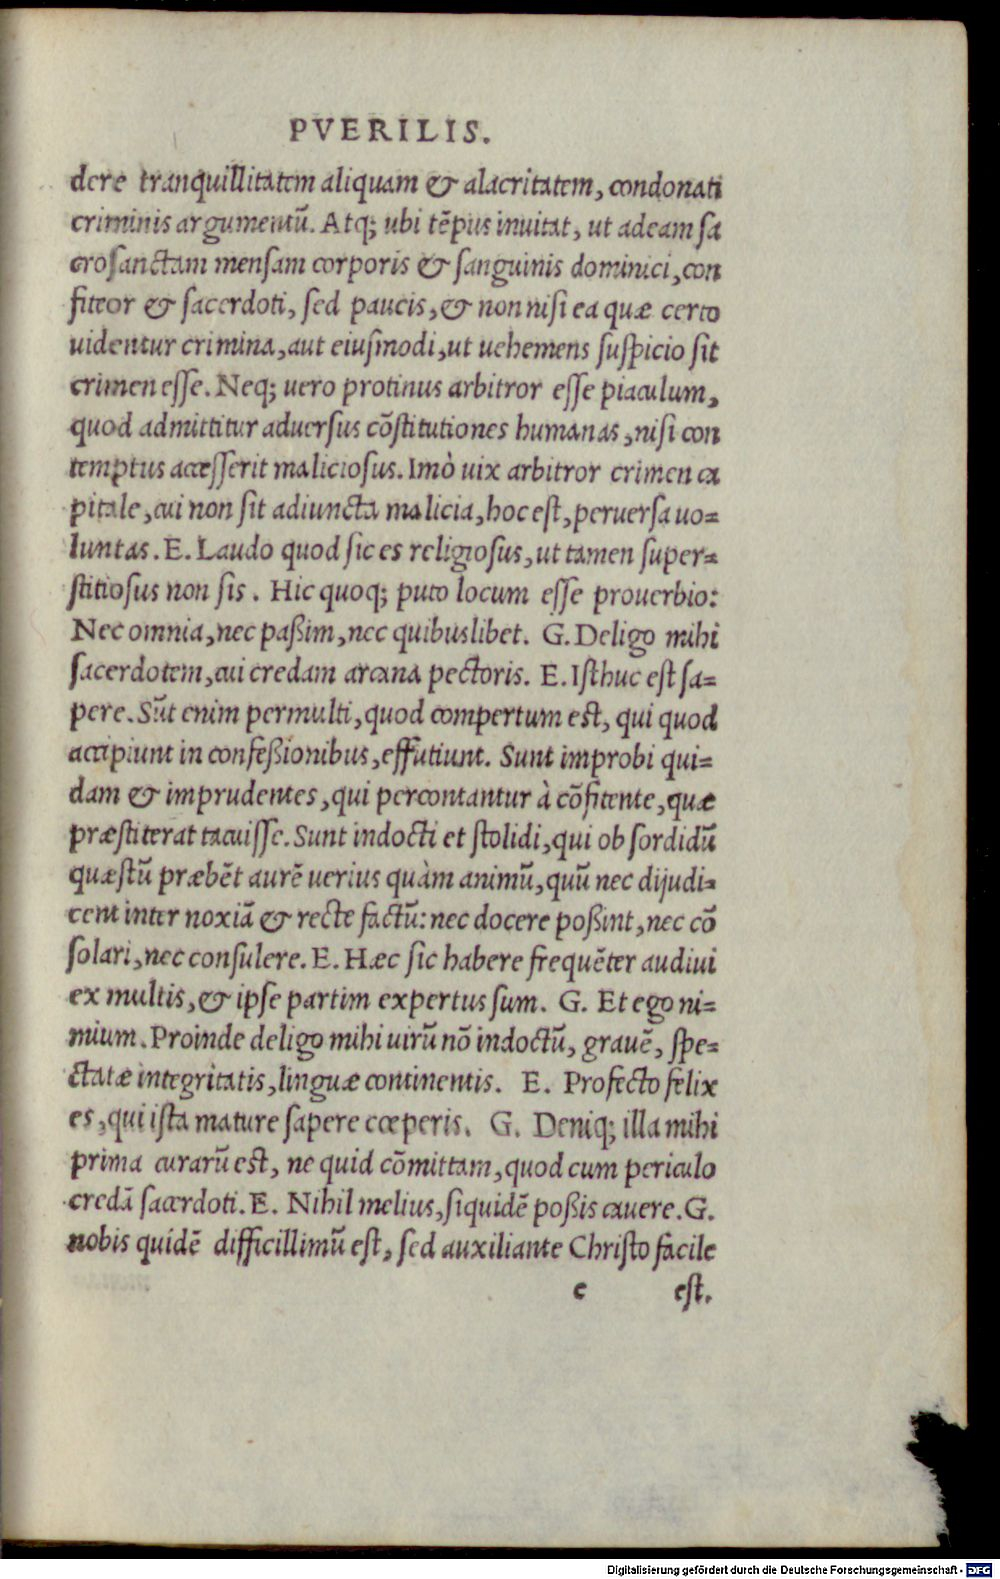 PVERILIS.
dere tranquillitatem aliquam & alacritatem, condonati
criminis argumentũ. Atq; ubi tẽpus inuitat, ut adeam ſa
croſanctam menſam corporis & ſanguinis dominici, con
fiteor & ſacerdoti, ſed paucis, & non niſi ea quæ certo
uidentur crimina, aut eiuſmodi, ut uehemens ſuſpicio ſit
crimen eſſe. Neq; uero protinus arbitror eſſe piaculum,
quod admittitur aduerſus cõſtitutiones humanas, niſi con
temptus acceſſerit malicioſus. Imò uix arbitror crimen ca
pitale, cui non ſit adiuncta malicia, hoc eſt, peruerſa uo=
luntas. E. Laudo quod ſic es religioſus, ut tamen ſuper=
ſtitioſus non ſis. Hic quoq; puto locum eſſe prouerbio:
Nec omnia, nec paßim, nec quibuslibet. G. Deligo mihi
ſacerdotem, cui credam arcana pectoris. E. Iſthuc eſt ſa=
pere. Sũt enim permulti, quod compertum eſt, qui quod
accipiunt in confeßionibus, effutiunt. Sunt improbi qui=
dam & imprudentes, qui percontantur à cõfitente, quæ
præſtiterat tacuiſſe. Sunt indocti et ſtolidi, qui ob ſordidũ
quæſtũ præbẽt aurẽ uerius quàm animũ, quũ nec dijudi=
cent inter noxiã & recte factũ: nec docere poßint, nec cõ
ſolari, nec conſulere. E. Hæc ſic habere frequẽter audiui
ex multis, & ipſe partim expertus ſum. G. Et ego ni=
mium. Proinde deligo mihi uirũ nõ indoctũ, grauẽ, ſpe=
ctatæ integritatis, linguæ continentis. E. Profecto felix
es, qui iſta mature ſapere cœperis. G. Deniq; illa mihi
prima curarũ eſt, ne quid cõmittam, quod cum periculo
credã ſacerdoti. E. Nihil melius, ſiquidẽ poßis cauere. G.
nobis quidẽ difficillimũ eſt, ſed auxiliante Chriſto facile
e eſt.
Digitalisierung gefördert durch die Deutsche Forschungsgemeinschaft - DFG